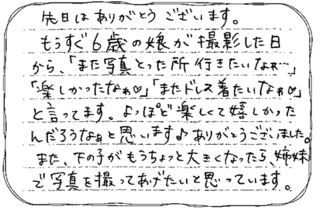 先日はありがとうございます。
もうすぐ6歳の娘が撮影した日
から、「また写真とった所行きたいなぁ…」
「楽しかったなぁ♡」「またドレス着たいなぁ♡」
と言ってます。よっぽど楽しくて嬉しかった
んだろうなぁと思います♪ありがとうございました。
また、下の子がもうちょっと大きくなったら、姉妹
で写真を撮ってあげたいと思っています。